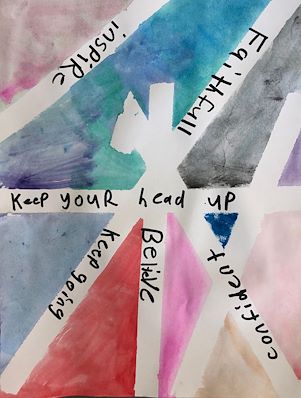 inspire
Faithfull
Keep your head up
Keep going
Believe
confident